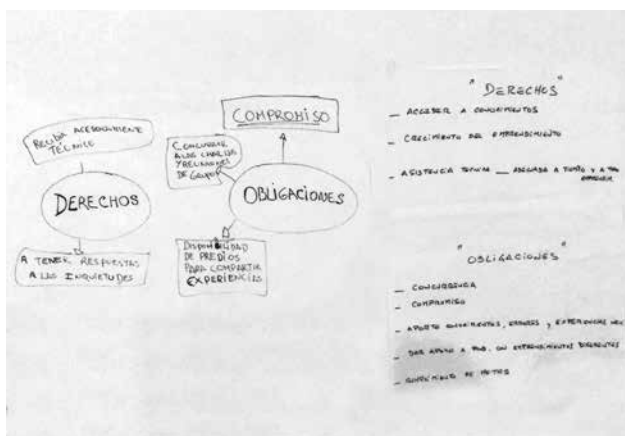 RECIBIR ASESORAMIENTO
TÉCNICO
DERECHOS
A TENER RESPUESTAS
A LAS INQUIETUDES
COMPROMISO
CONCURRIR
A LAS CHARLAS
Y REUNIONES
DE GRUPO
OBLIGACIONES
DISPONIBILIDAD
DE PREDIOS
PARA COMPARTIR
EXPERIENCIAS
"DERECHOS"
- ACCEDER A CONOCIMIENTOS
- CRECIMIENTO DEL EMPRENDIMIENTO
- ASISTENCIA TECNICA — ADECUADA A TIEMPO Y A
"OBLIGACIONES"
- CONCURRENCIA
- COMPROMISO
- APORTE CONOCIMIENTOS, ERRORES Y EXPERIENCIAS
- DAR APOYO A EMPRENDIMIENTOS DIFERENTES
- DE METAS